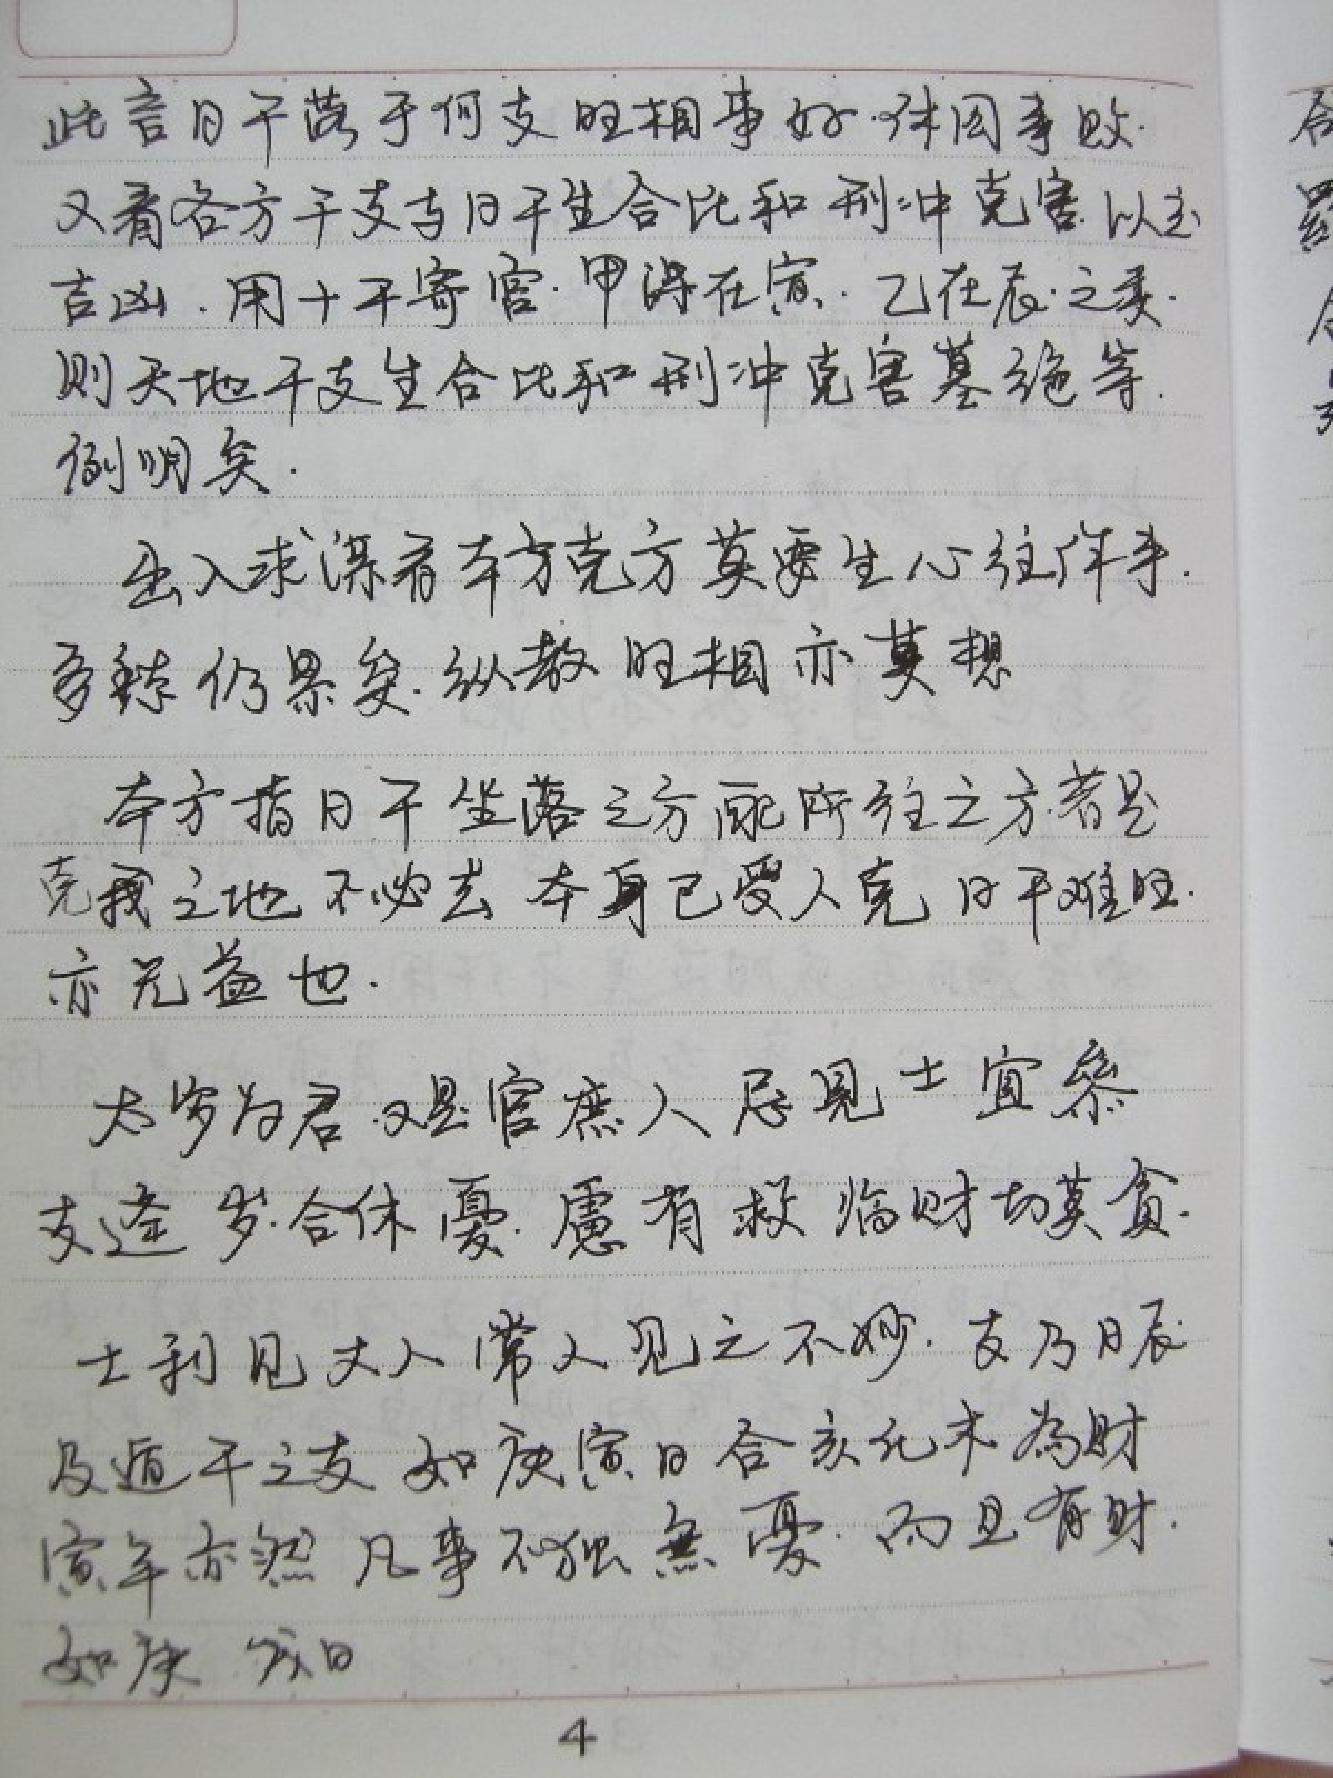 此言日干落于何支旺相事好.休囚事败.
又看各方干支与日干生合比和刑冲克害.以定
吉凶.用十干寄宫.甲课在寅.乙在辰.之类.
则天地干支生合比和刑冲克害墓绝等.
例明矣.
出入求谋看本方克方莫要生心往作事.
多来仍累矣.纵教旺相亦莫想
本方指日干坐落之方配所往之方.若是
克我之地不必去本身已受人克日干虽旺.
亦无益也.
太岁为君.又是官庶人忌見士宜參
支逢岁.合休憂.慮有救临财切莫貪.
士利見大人常人见之不妙.支乃日辰
及遁干之支如庚寅日合亥化木為財
寅年亦然凡事不独無憂.而且有財.
如庚戌日
4